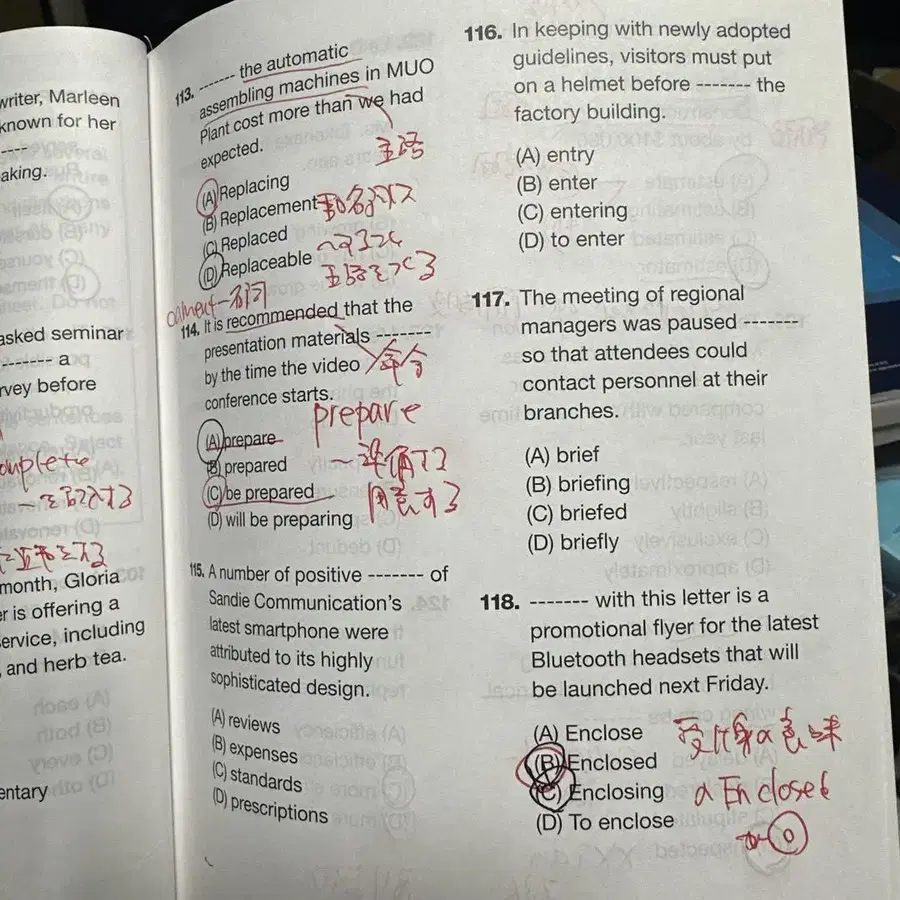 writer, Marleen
known for her
----
aking.
asked seminar
------- a
rvey before
omplete
month, Gloria
er is offering a
service, including
, and herb tea.
entary
113. ------- the automatic
assembling machines in MUO
Plant cost more than we had
expected.
主語
(A) Replacing
(B) Replacement
動名詞
(C) Replaced
(D) Replaceable
名詞
114. It is recommended that the
presentation materials -------
by the time the video
conference starts.
prepare
(A) prepare
(B) prepared
〜準備する
(C) be prepared
用意する
(D) will be preparing
115. A number of positive ------- of
Sandie Communication's
latest smartphone were
attributed to its highly
sophisticated design.
(A) reviews
(B) expenses
(C) standards
(D) prescriptions
116. In keeping with newly adopted
guidelines, visitors must put
on a helmet before ------- the
factory building.
(A) entry
(B) enter
(C) entering
(D) to enter
117. The meeting of regional
managers was paused -------
so that attendees could
contact personnel at their
branches.
(A) brief
(B) briefing
(C) briefed
(D) briefly
118. ------- with this letter is a
promotional flyer for the latest
Bluetooth headsets that will
be launched next Friday.
(A) Enclose
(B) Enclosed
(C) Enclosing
(D) To enclose
受け身の意味
の Enclosed